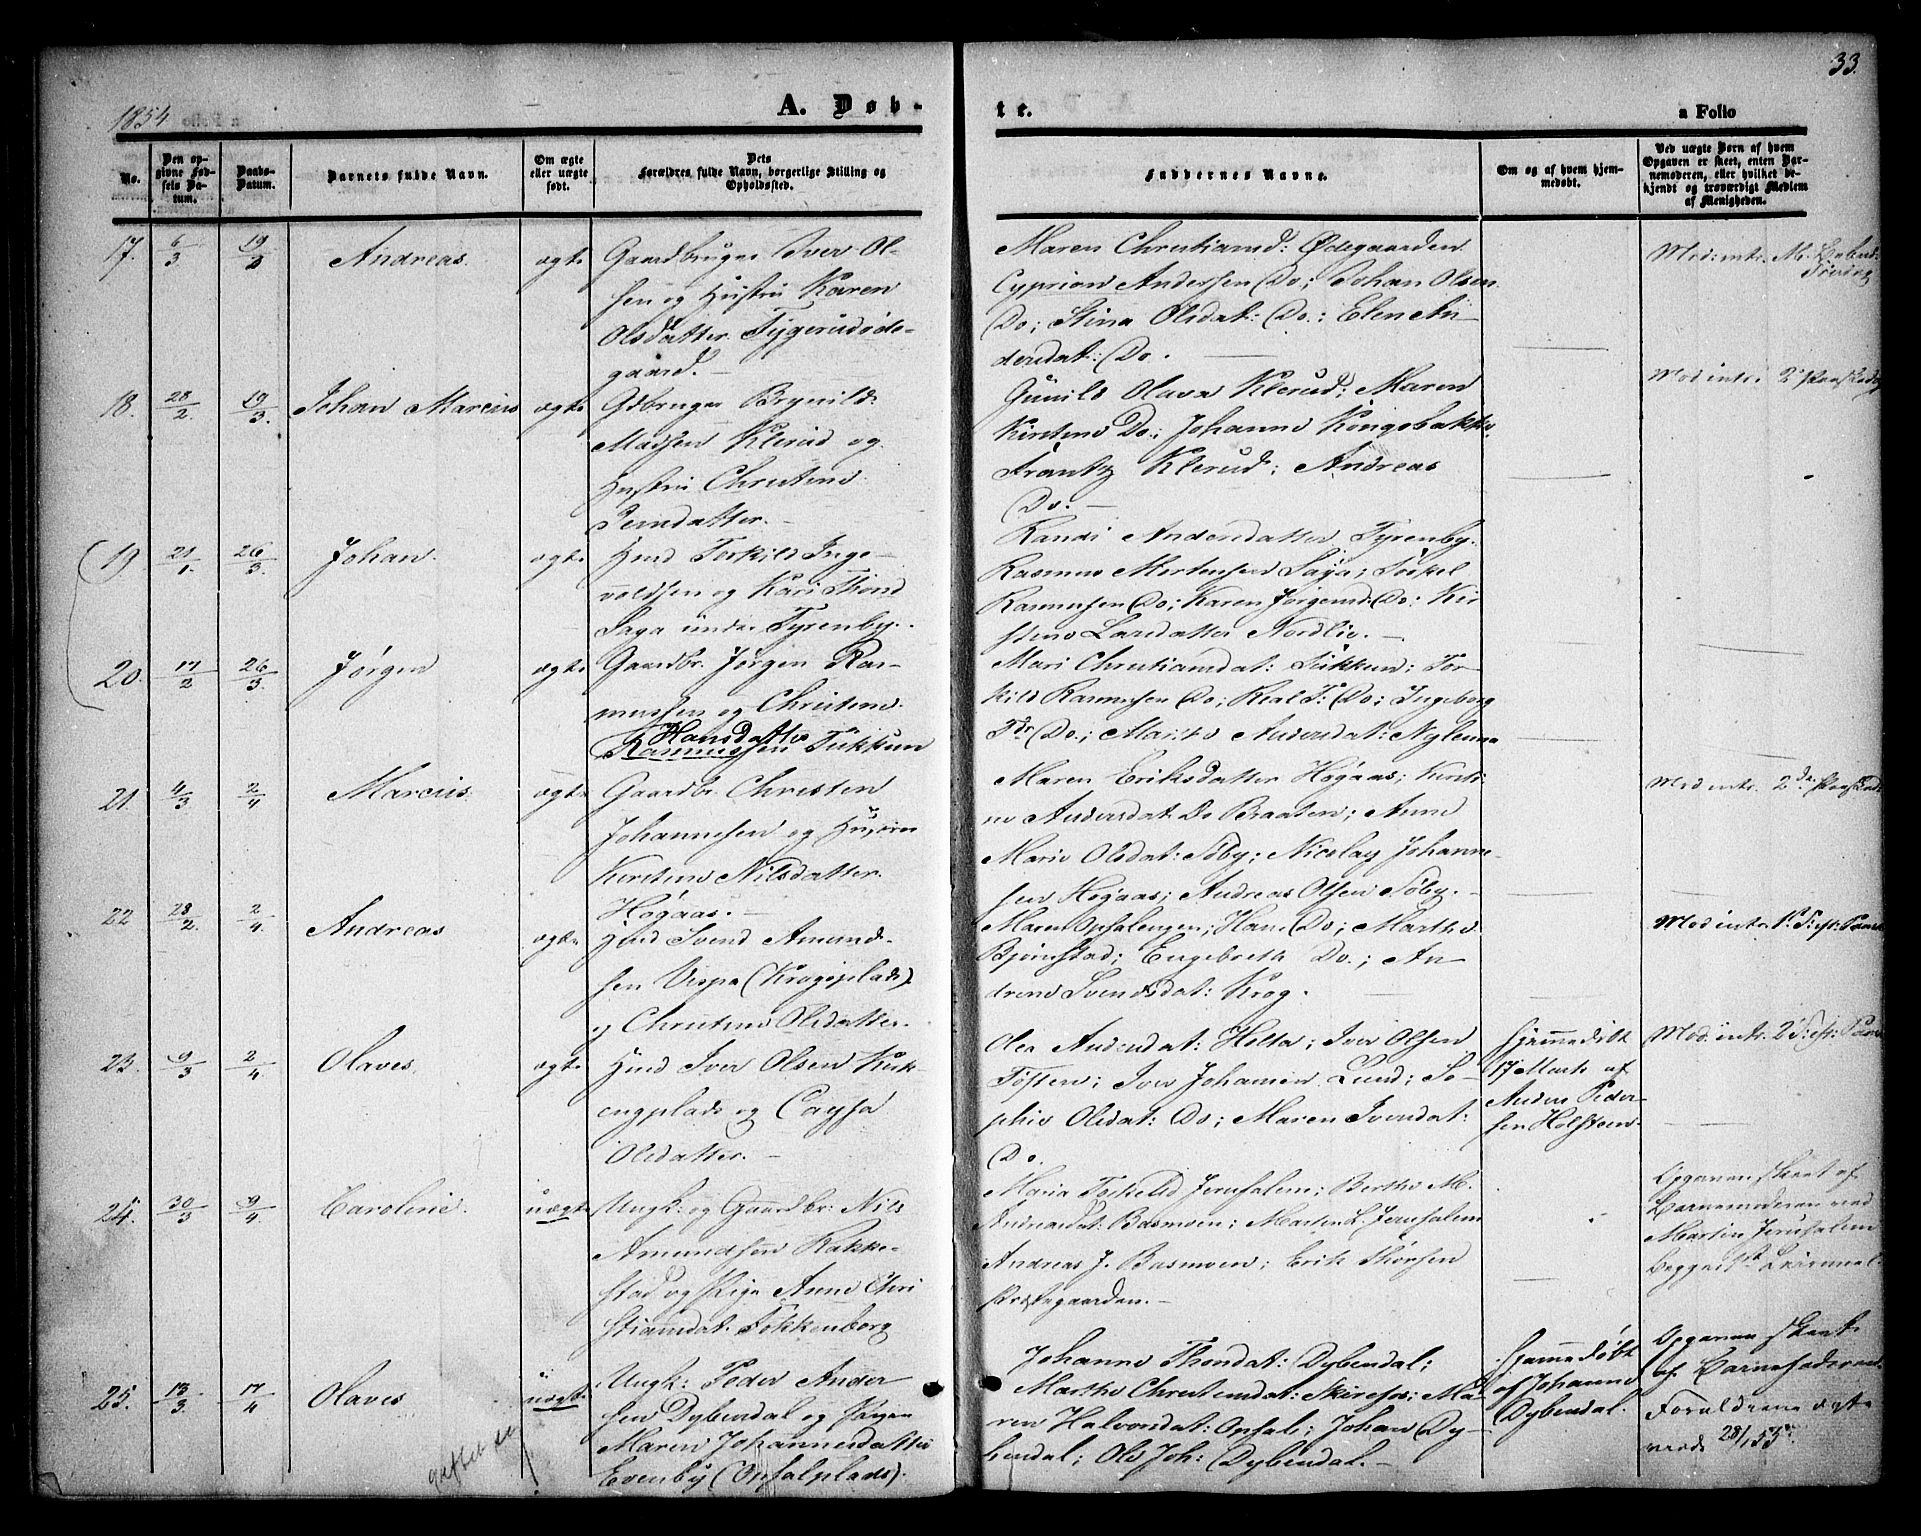 33.
1854
A. Døb-
te.
a Folio
No.
Den op-
givne Fød-
sels Da-
tum.
Daabs-
Datum.
Barnets fulde Navn.
Om ægte
eller uægte
født.
Dets
Forældres fulde Navn, borgerlige Stilling og
Opholdssted.
Faddernes Navne.
Om og af hvem hjem-
medøbt.
Ved uægte Børn af hvem
Opgaven er skeet, enten Bar-
nemoderen, eller hvilket be-
kjendt og troværdigt Medlem
af Menigheden.
17. 6/3 19/3 Andreas. ægte
Gaardbruger Iver Ol-
sen og Hustru Karen
Olsdatter
gaard.-
Maren Christiansd: Ødegaarden
Cyprian Anderssen Do; Johan Olsen
Do; Stina Olsdat: Do: Elen An-
dersdat: Do.
Mod: intr. M.
18. 28/2 19/3. Johan Marcius ægte
Gdbruger Brynild
Madsen Klerud og
Hustru Christine
datter.-
Gunild Olava Klerud; Maren
Kirstine Do; Johanne Kongsbakke,
Frantz Klerud; Andreas
Do.-
Mod intr. 2
19 21/1. 26/3. Johan. ægte
Hmd Torkild Inge-
voldsen og Kari
Saga under Tyrenby.
Randi Andersdatter Tyrenby.
Rasmus Mortensen Saga; Torkel
Rasmussen Do; Karen Jørgensd: Do: Kir
stine Larsdatter Nordlie.-
20. 17/2 26/3. Jørgen ægte
Gaardbr. Jørgen Ras-
mussen og Christine
Hansdatter
Rasmussen Tukkun
Mari Christiansdat: Tukkun; Tor-
kild Rasmussen Do; Real T: Do; Ingeborg
Tdr Do; Marthe Andersdat:
21. 4/3 2/4 Marcius. ægte
Gaardbr. Christen
Johannesen og Hustru
Kirstine Nilsdatter.
Høgaas.-
Maren Eriksdatter Høgaas; Kirsti-
ne Andersdat: Do Braaten; Anne
Marie Olsdat: Søby; Nicolay Johanne-
sen Høgaas; Andreas Olsen Søby.-
Mod intr. 2de
22 28/2. 2/4. Andreas ægte
Hmd Svend Amund-
sen Vispa (Krogsplads)
og Christine Olsdatter.
Maren Opsalengen; Hans Do; Marthe
Bjønstad; Engebreth Do.; An-
drine Svendsdat: Krog.
Mod intr.
23. 9/3 2/4 Olaves. ægte
Hmd Iver Olsen
engplads og Caysa
Olsdatter.-
Olea Andersdat: Holta; Iver Olsen
Tosten; Iver Johannesen Lund; So-
phie Olsdat: Do; Maren Iversdat:
Do.
Hjemmedøbt
17 Marts af
Anders Peder-
sen Holsteen.
Mod: intr. 2
24. 30/3 9/4. Caroline. uægte
Ungk: og Gaardbr: Nils
Amundsen Rakke-
stad og Pige Anne Chri
stiansdat: Fokkenborg
Maria Torkelsd Jerusalem; Berthe M.
Andreasdat: Basmoen; Morten L. Jerusalem
Andreas J. Basmoen; Erik Thorsen
Præstegaarden.-
Opgaven skeet af
Barnemoderen ved
Martin Jerusalem
25. 13/3. 17/4 Olaves uægte
Ungk: Peder Ander
sen Dybendal og Pigen
Maren Johannesdatter
Evenby (Opsalplads).
Johanne Thorsdat: Dybendal;
Marthe Christensdat: Ma-
ren Halvorsdat: Opsal; Johan Dy-
bendal; Ole Joh: Dybendal.-
Hjemmedøbt
af Johanne
Dybendal.
Opgaven skeet
af Barnefaderen.
Forældrene ægte
viede 28/1 55.